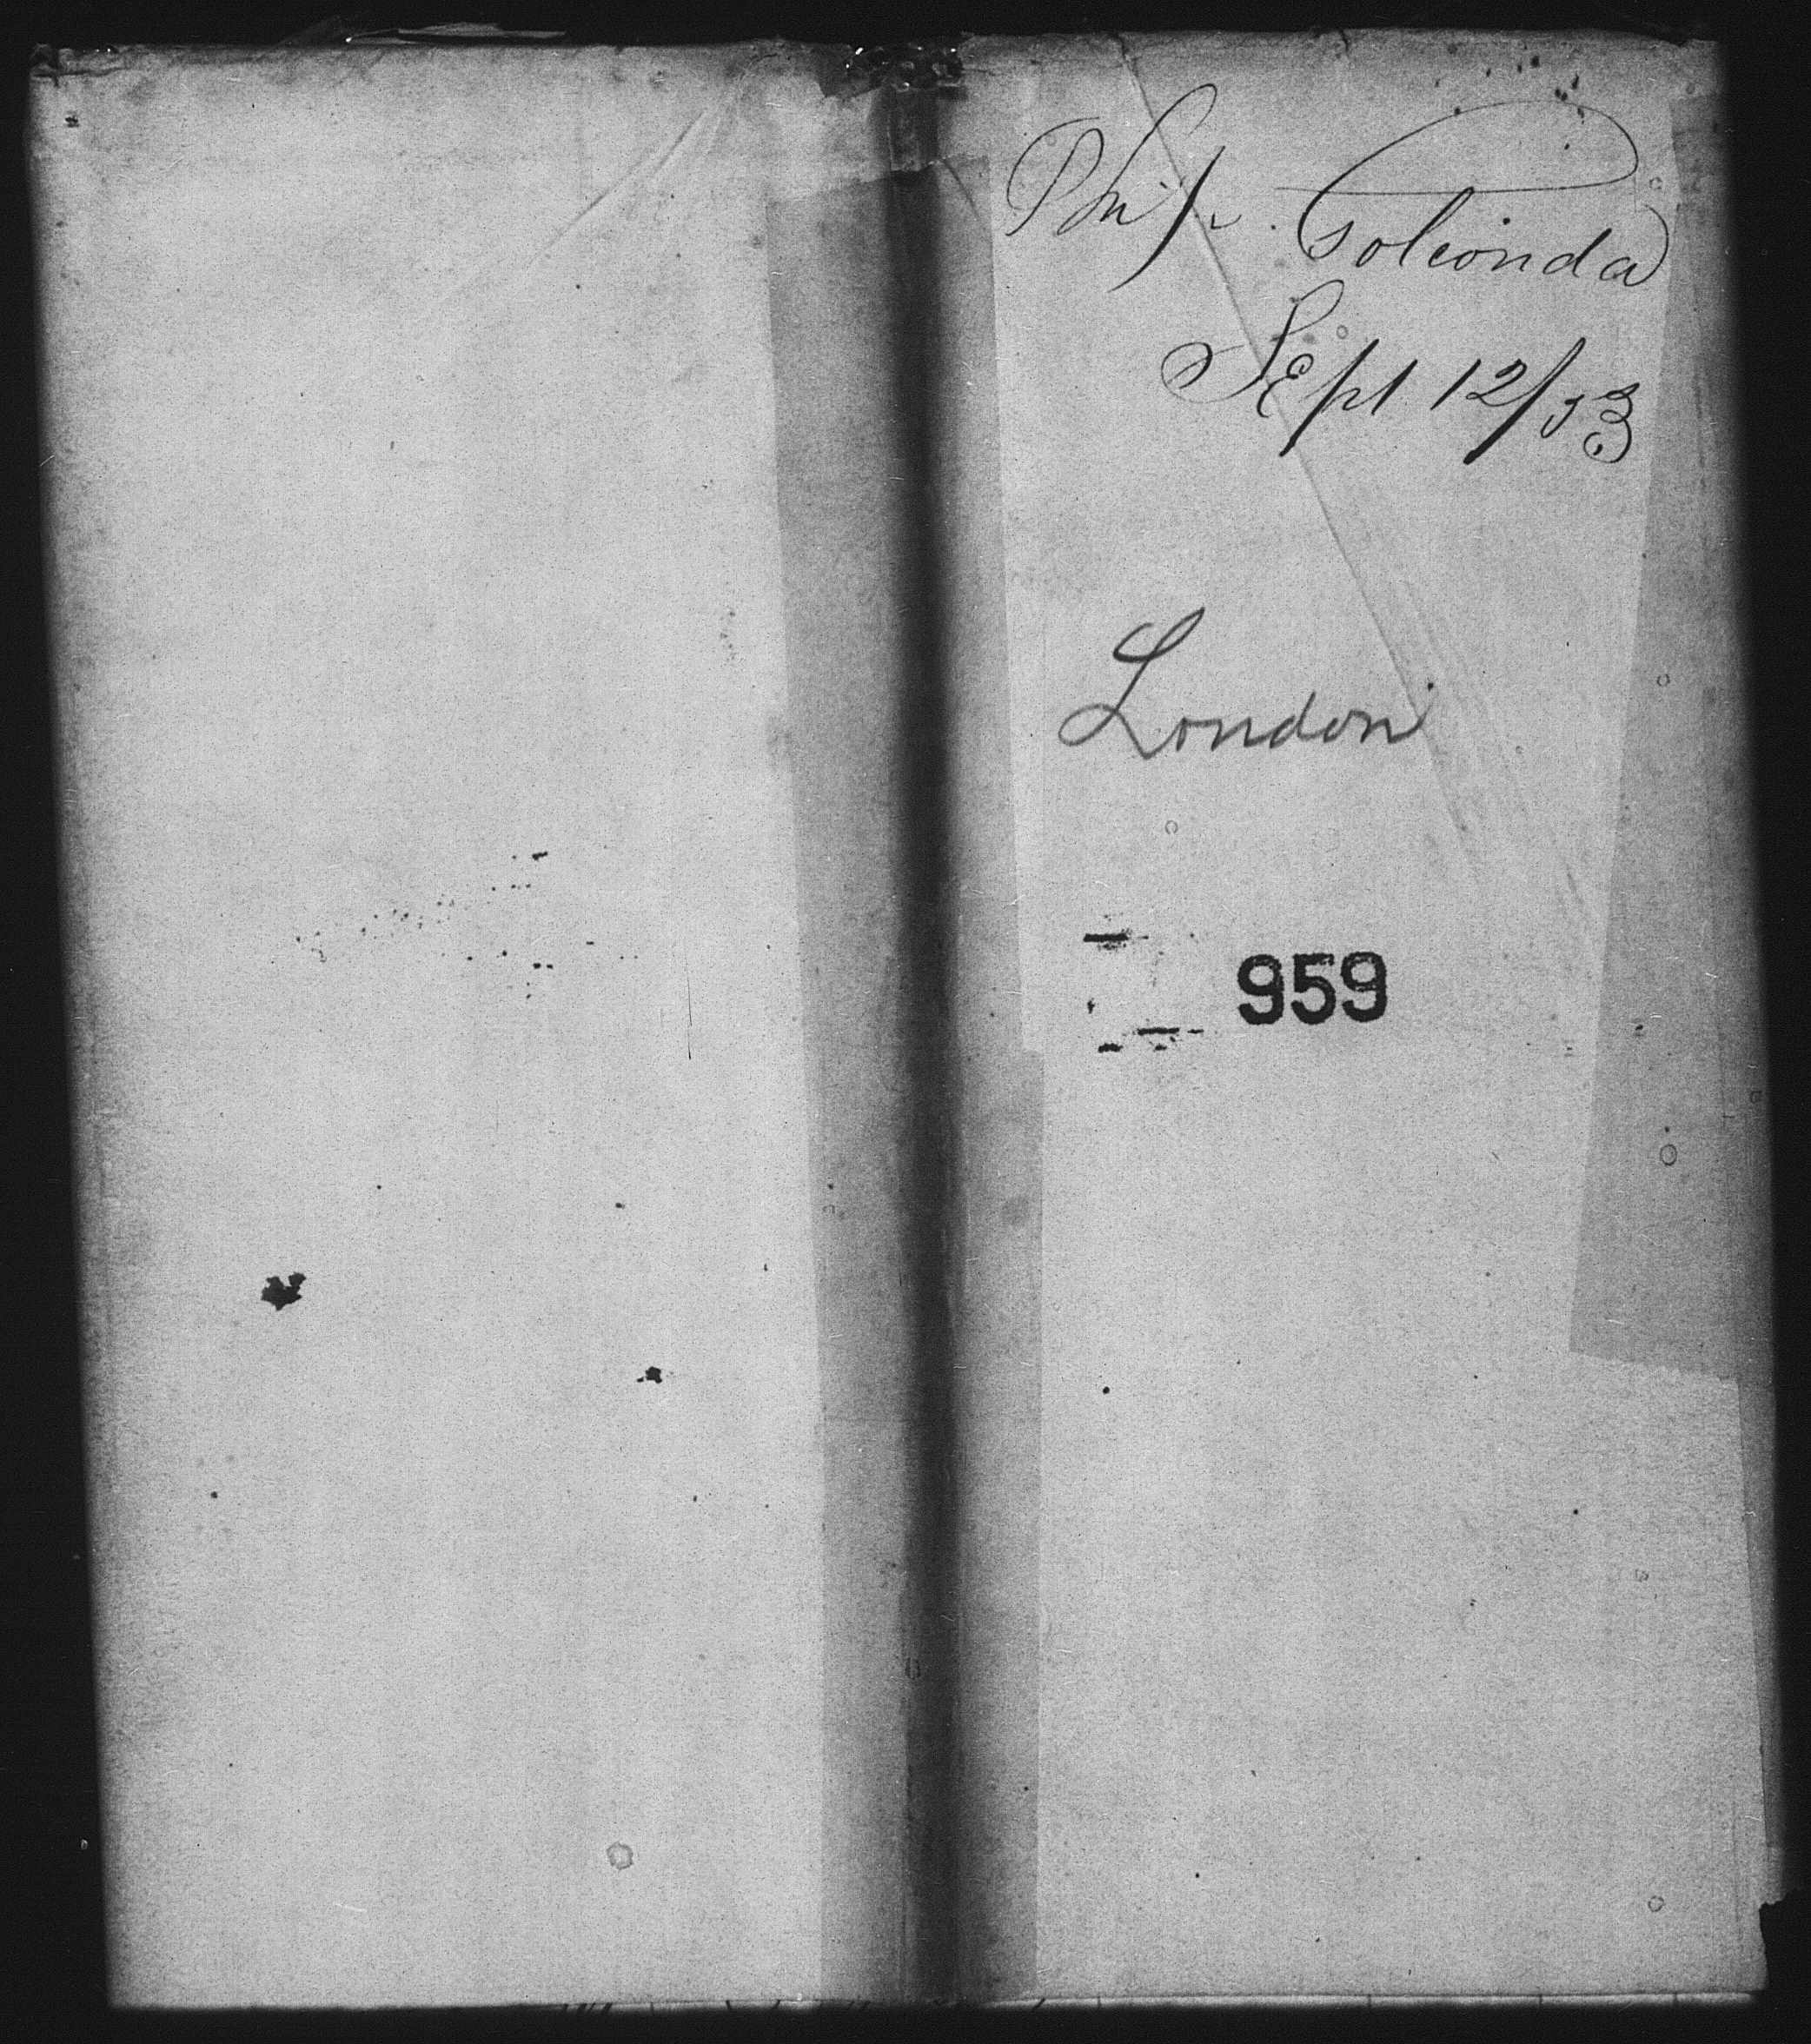 Ship. Golconda
Sept 12/53
London
959